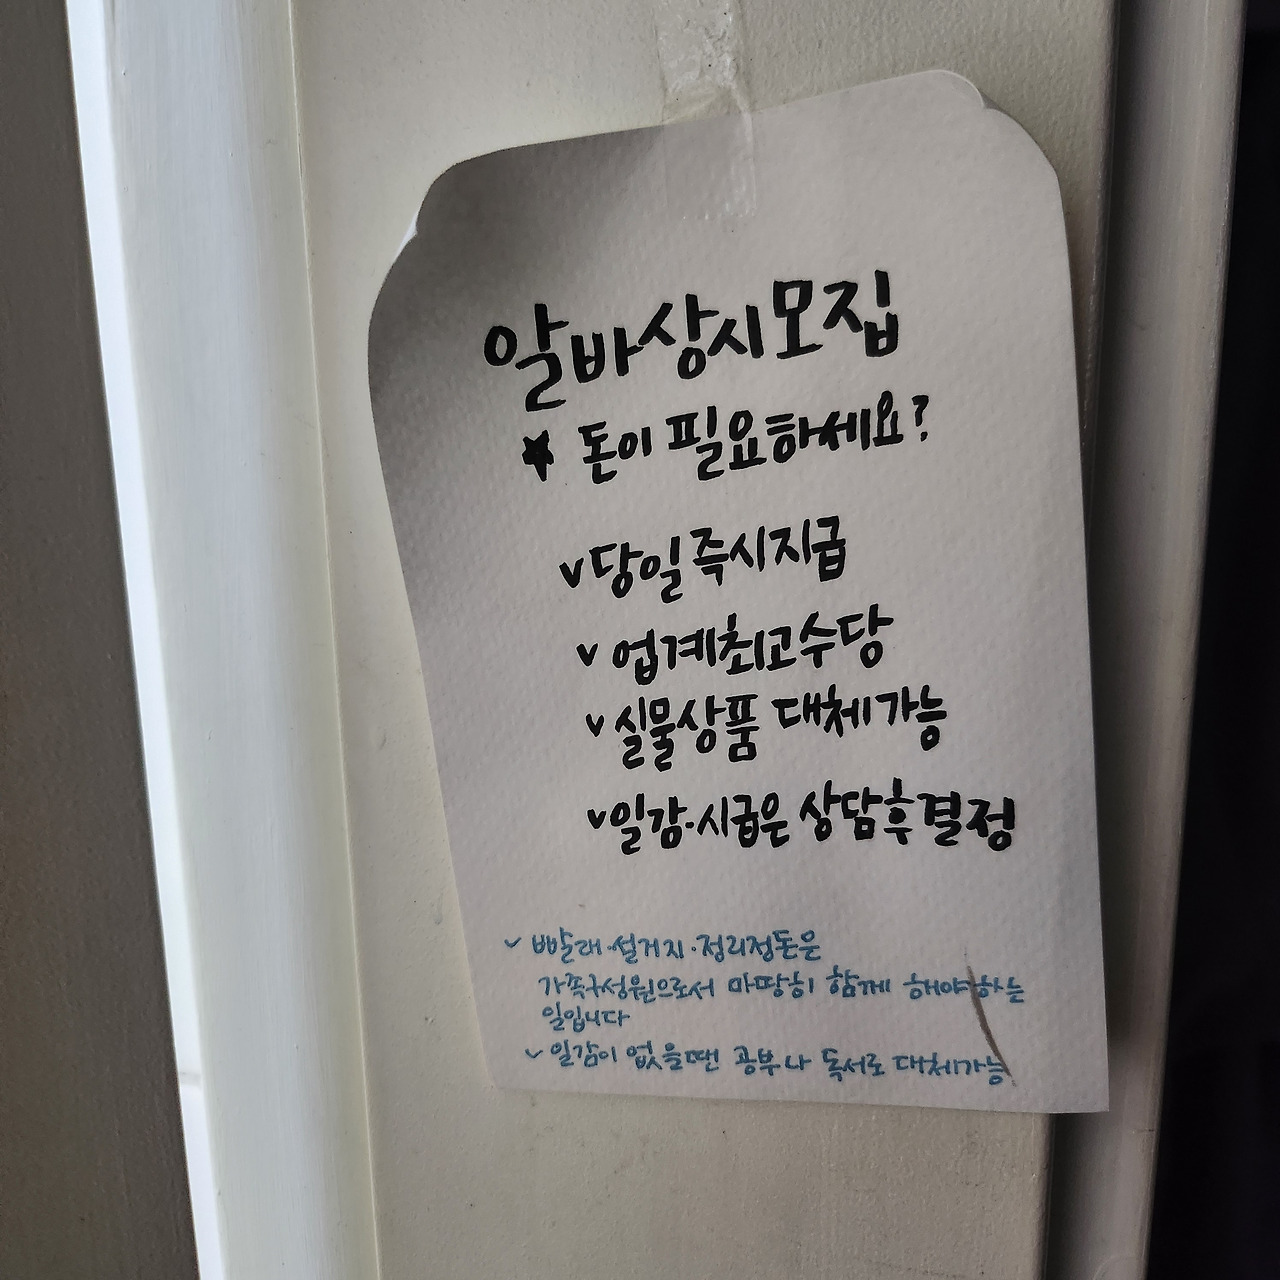 알바상시모집
★ 돈이 필요하세요?
v 당일즉시지급
v 업계최고수당
v 실물상품 대체가능
v 일감·시급은 상담후결정
v 빨래·설거지·정리정돈은
가족구성원으로서 마땅히 함께 해야하는
일입니다
v 일감이 없을땐 공부나 독서로 대체가능